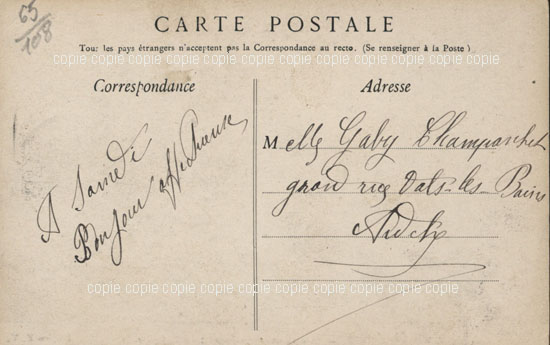 65
108
CARTE POSTALE
Tous les pays étrangers n'acceptent pas la Correspondance au recto. (Se renseigner à la Poste)
copie copie copie copie copie copie copie copie copie copie copie
Correspondance
Adresse
A Samedi
Bonjour affectueux
Melle Gaby Champanhet
grand rue Vals-les-Bains
Ardch
copie copie copie copie copie copie copie copie copie